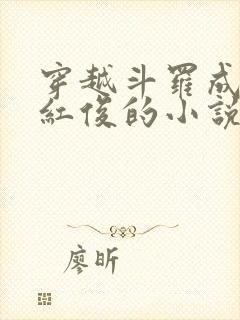 穿越斗羅成
紅俊的小說
廖昕